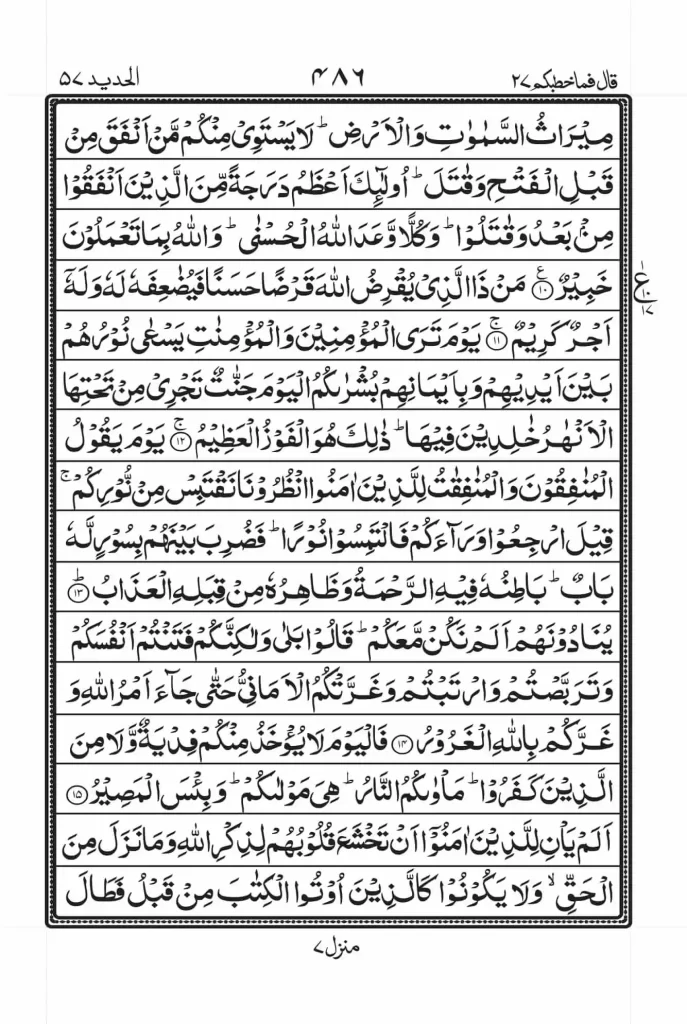 قال فما خطبكم ٢٧ ۴۸۶ الحديد ٥٧
مِيْرَاثُ السَّمٰوٰتِ وَالْاَرْضِ ؕ لَا يَسْتَوِيْ مِنْكُمْ مَّنْ اَنْفَقَ مِنْ
قَبْلِ الْفَتْحِ وَقٰتَلَ ؕ اُولٰٓئِكَ اَعْظَمُ دَرَجَةً مِّنَ الَّذِيْنَ اَنْفَقُوْا
مِنْۢ بَعْدُ وَقٰتَلُوْا ؕ وَكُلًّا وَّعَدَ اللّٰهُ الْحُسْنٰى ؕ وَاللّٰهُ بِمَا تَعْمَلُوْنَ
خَبِيْرٌ ۧ ﴿١٠﴾ مَنْ ذَا الَّذِيْ يُقْرِضُ اللّٰهَ قَرْضًا حَسَنًا فَيُضٰعِفَهٗ لَهٗ وَلَهٗۤ
ع ١٠ ١٧
اَجْرٌ كَرِيْمٌ ۚ ﴿١١﴾ يَوْمَ تَرَى الْمُؤْمِنِيْنَ وَالْمُؤْمِنٰتِ يَسْعٰى نُوْرُهُمْ
بَيْنَ اَيْدِيْهِمْ وَبِاَيْمَانِهِمْ بُشْرٰىكُمُ الْيَوْمَ جَنّٰتٌ تَجْرِيْ مِنْ تَحْتِهَا
الْاَنْهٰرُ خٰلِدِيْنَ فِيْهَا ؕ ذٰلِكَ هُوَ الْفَوْزُ الْعَظِيْمُ ۚ ﴿١٢﴾ يَوْمَ يَقُوْلُ
الْمُنٰفِقُوْنَ وَالْمُنٰفِقٰتُ لِلَّذِيْنَ اٰمَنُوا انْظُرُوْنَا نَقْتَبِسْ مِنْ نُّوْرِكُمْ ۚ
قِيْلَ ارْجِعُوْا وَرَآءَكُمْ فَالْتَمِسُوْا نُوْرًا ؕ فَضُرِبَ بَيْنَهُمْ بِسُوْرٍ لَّهٗ
بَابٌ ؕ بَاطِنُهٗ فِيْهِ الرَّحْمَةُ وَظَاهِرُهٗ مِنْ قِبَلِهِ الْعَذَابُ ؕ ﴿١٣﴾
يُنَادُوْنَهُمْ اَلَمْ نَكُنْ مَّعَكُمْ ؕ قَالُوْا بَلٰى وَلٰكِنَّكُمْ فَتَنْتُمْ اَنْفُسَكُمْ
وَتَرَبَّصْتُمْ وَارْتَبْتُمْ وَغَرَّتْكُمُ الْاَمَانِيُّ حَتّٰى جَآءَ اَمْرُ اللّٰهِ وَ
غَرَّكُمْ بِاللّٰهِ الْغَرُوْرُ ﴿١٤﴾ فَالْيَوْمَ لَا يُؤْخَذُ مِنْكُمْ فِدْيَةٌ وَّلَا مِنَ
الَّذِيْنَ كَفَرُوْا ؕ مَاْوٰىكُمُ النَّارُ ؕ هِيَ مَوْلٰىكُمْ ؕ وَبِئْسَ الْمَصِيْرُ ﴿١٥﴾
اَلَمْ يَاْنِ لِلَّذِيْنَ اٰمَنُوْۤا اَنْ تَخْشَعَ قُلُوْبُهُمْ لِذِكْرِ اللّٰهِ وَمَا نَزَلَ مِنَ
الْحَقِّ ۙ وَلَا يَكُوْنُوْا كَالَّذِيْنَ اُوْتُوا الْكِتٰبَ مِنْ قَبْلُ فَطَالَ
منزل ٧